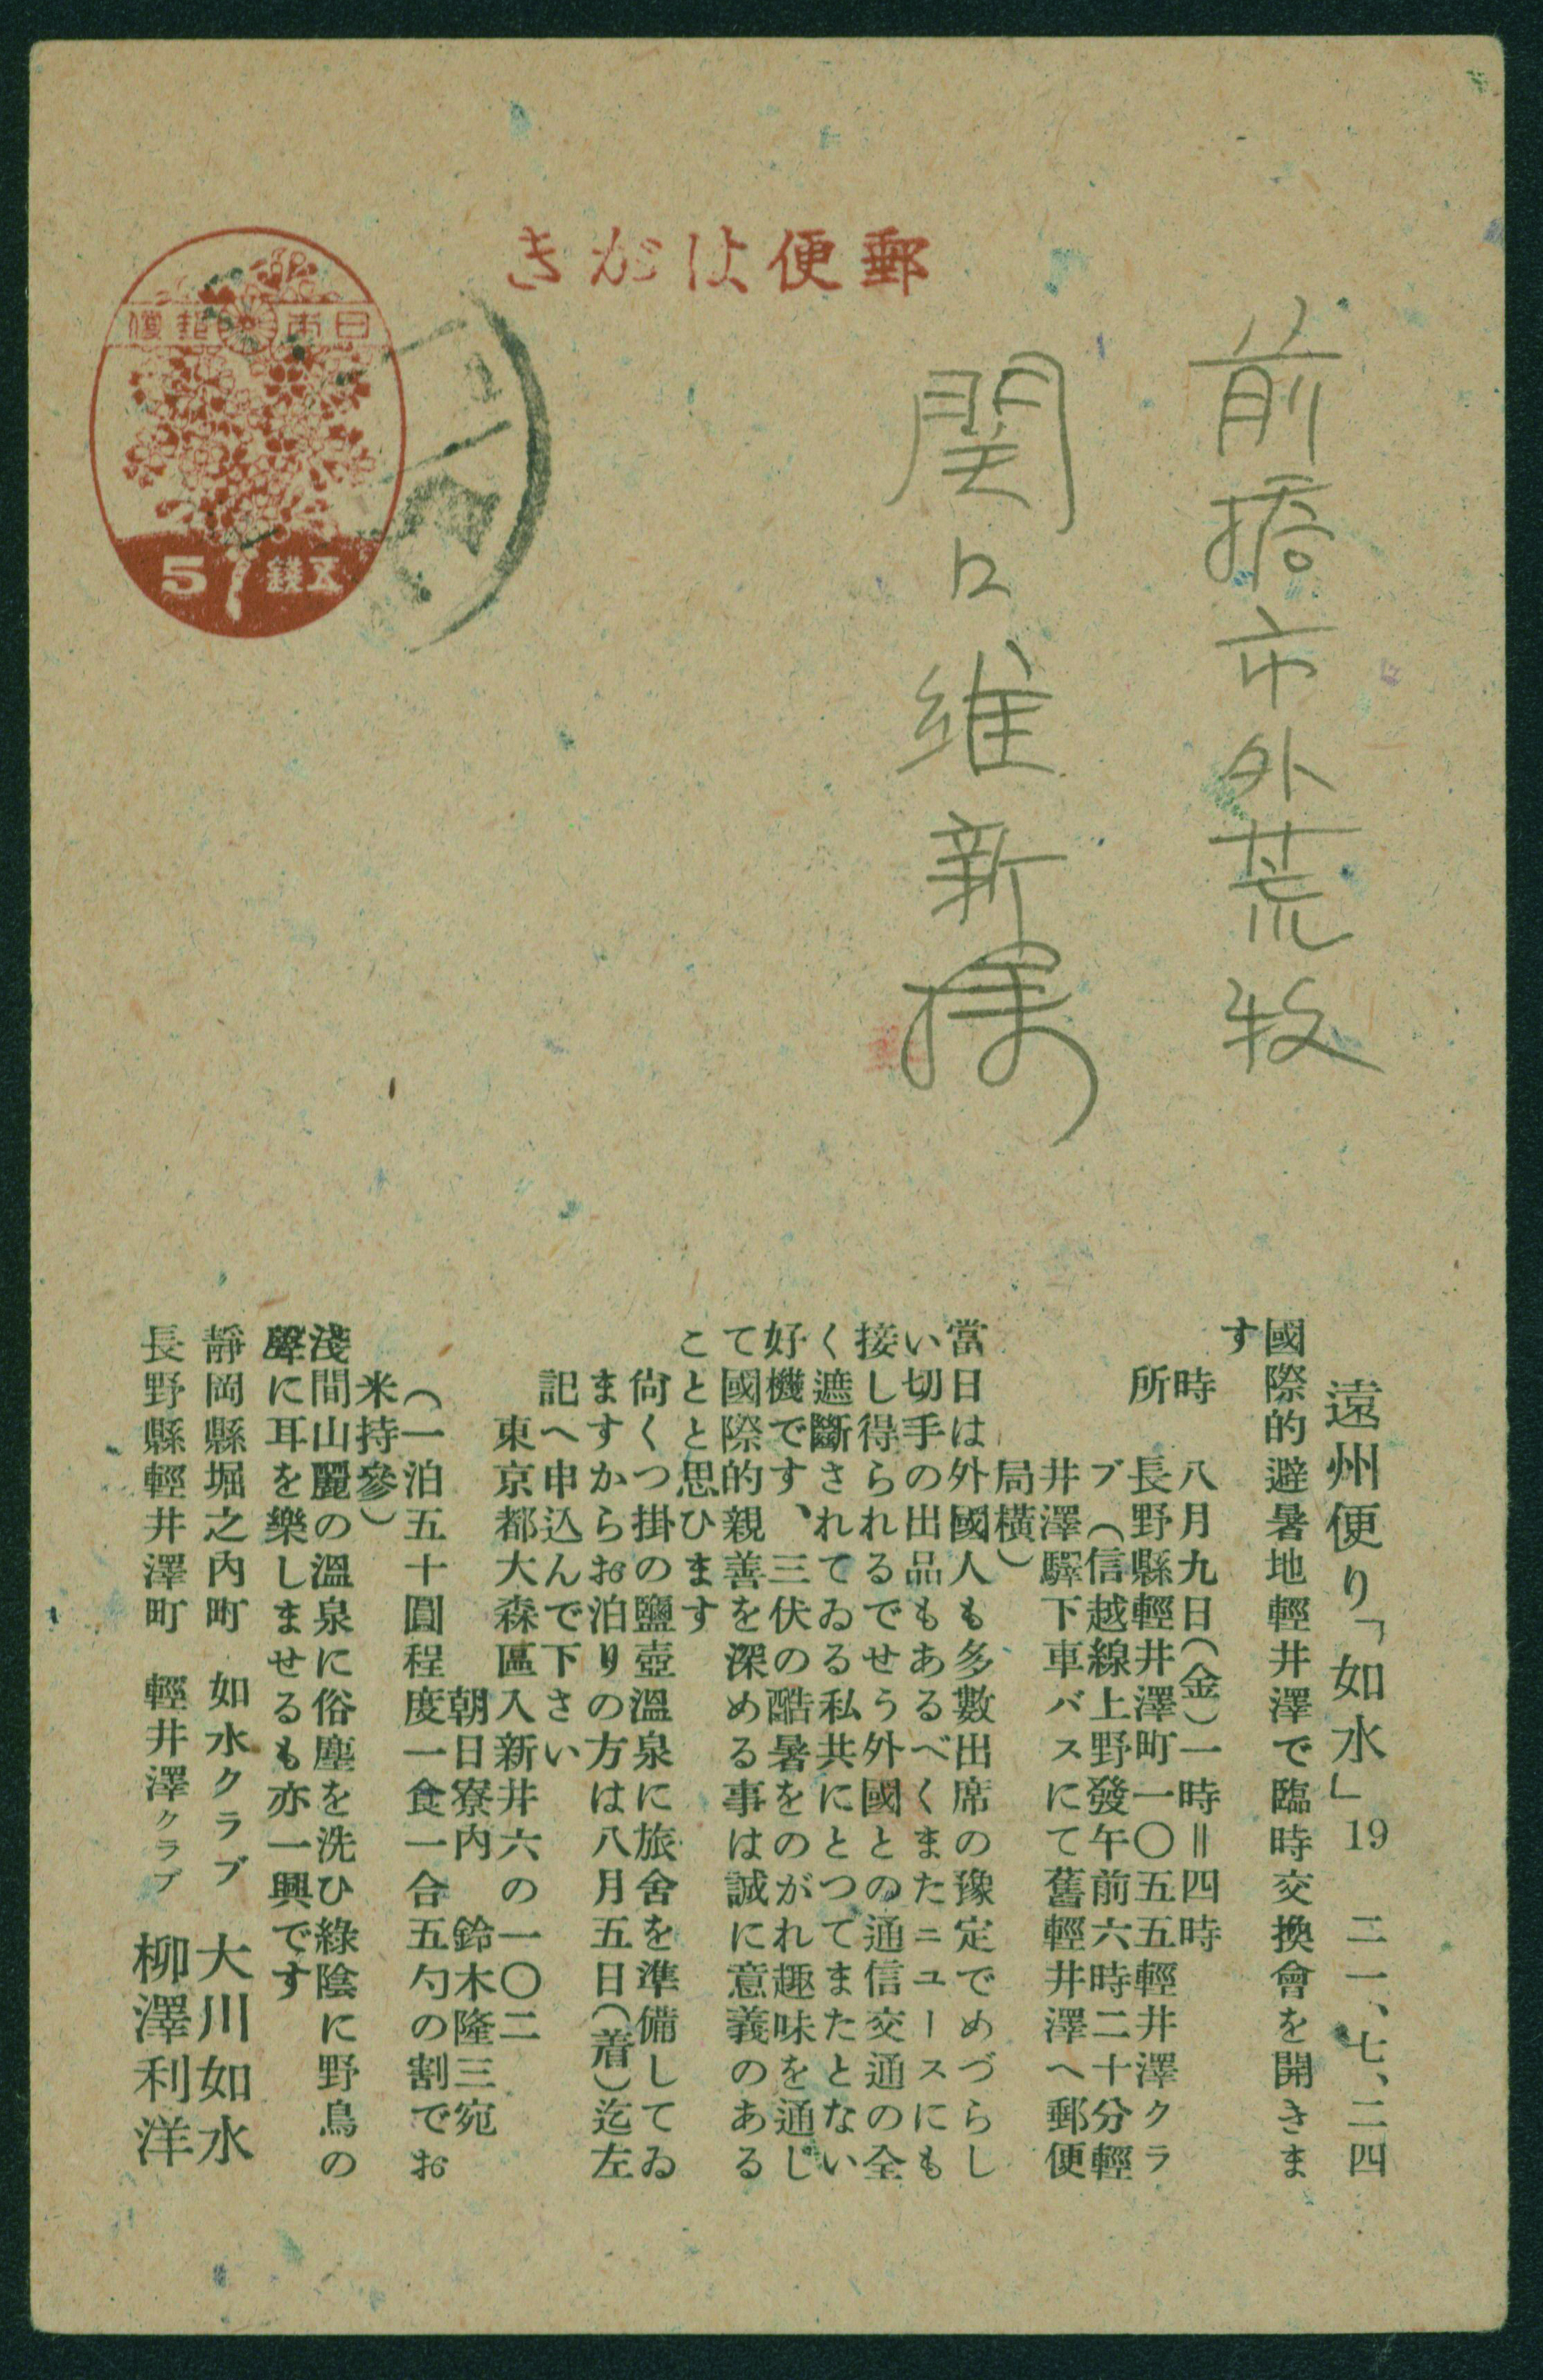 郵便はがき
日本郵便
五錢 5
前橋市外荒牧
関口維新様
遠州便り「如水」19 二一、七、二四
國際的避暑地輕井澤で臨時交換會を開きま
す
時 八月九日(金)一時=四時
所 長野縣輕井澤町一〇五五輕井澤クラ
ブ(信越線上野發午前六時二十分輕
井澤驛下車バスにて舊輕井澤へ郵便
局横)
當日は外國人も多數出席の豫定でめづらし
い切手の出品もあるべくまたニュースにも
接し得られるでせう外國との通信交通の全
く遮斷されてゐる私共にとつてまたとない
好機です、三伏の酷暑をのがれ趣味を通じ
て國際的親善を深める事は誠に意義のある
ことと思ひます
尙くつ掛の鹽壺溫泉に旅舍を準備してゐ
ますからお泊りの方は八月五日(着)迄左
記へ申込んで下さい
東京都大森區入新井六の一〇二
朝日寮内 鈴木隆三宛
(一泊五十圓程度一食一合五勺の割でお
米持參)
淺間山麗の溫泉に俗塵を洗ひ綠陰に野鳥の
聲に耳を樂しませるも亦一興です
靜岡縣堀之内町 如水クラブ 大川如水
長野縣輕井澤町 輕井澤クラブ 柳澤利洋